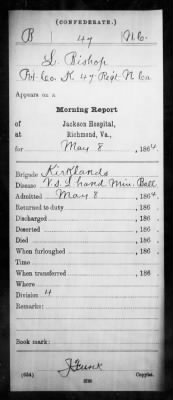 (CONFEDERATE.)
B | 47 | N.C.
L. Bishop
Pvt. Co. K 47 Regt N Ca
Appears on a
Morning Report
of Jackson Hospital,
at Richmond, Va.,
for May 8, 1864
Brigade Kirklands
Disease V. S. L hand Min. Ball
Admitted May 8, 1864.
Returned to duty, 186 .
Discharged, 186 .
Deserted, 186 .
Died, 186 .
When furloughed, 186 .
Time
When transferred, 186 .
Where
Division 4
Remarks:
Book mark:
J Funk
(634) Copyist.